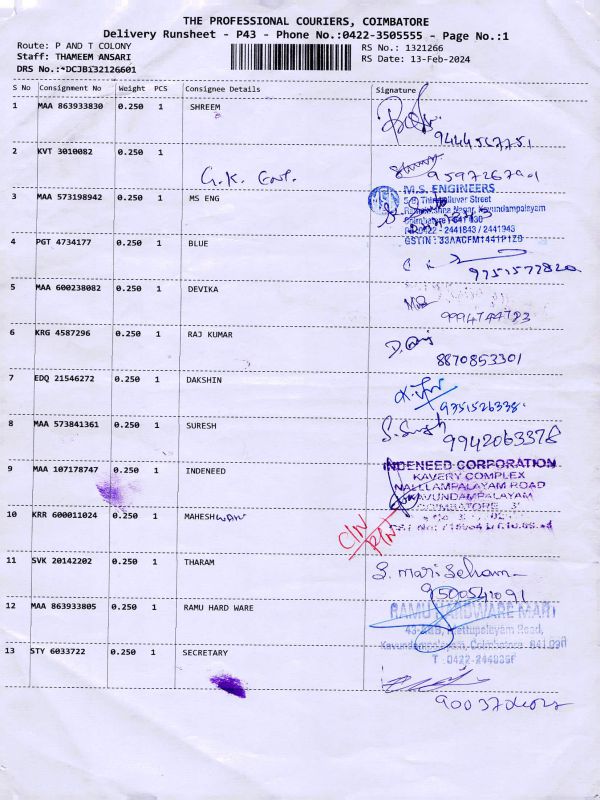 THE PROFESSIONAL COURIERS, COIMBATORE
Delivery Runsheet - P43 - Phone No.:0422-3505555 - Page No.:1
Route: P AND T COLONY
Staff: THAMEEM ANSARI
DRS No.:*DCJB132126601
RS No.: 1321266
RS Date: 13-Feb-2024
S No Consignment No Weight PCS Consignee Details Signature
1 MAA 863933830 0.250 1 SHREEM
9444567751
2 KVT 3010082 0.250 1
G.K. Govt.
9597267901
3 MAA 573198942 0.250 1 MS ENG
M.S. ENGINEERS
Street
Nagar, Kavundampalayam
Coimbatore - 641 030
0422 - 2441843 / 2441943
GSTIN : 33AACFM1441P1Z0
4 PGT 4734177 0.250 1 BLUE
9751577820
5 MAA 600238082 0.250 1 DEVIKA
9994744783
6 KRG 4587296 0.250 1 RAJ KUMAR
8870853301
7 EDQ 21546272 0.250 1 DAKSHIN
9751526338
8 MAA 573841361 0.250 1 SURESH
9942063378
9 MAA 107178747 0.250 1 INDENEED
INDENEED CORPORATION
KAVERY COMPLEX
NALLLAMPALAYAM ROAD
KAVUNDAMPALAYAM
COIMBATORE
10 KRR 600011024 0.250 1 MAHESHWARI
C/N
R/N
11 SVK 20142202 0.250 1 THARAM
9500541091
12 MAA 863933805 0.250 1 RAMU HARD WARE
RAMU HARDWARE MART
Mettupalayam Road,
Kavundampalayam, Coimbatore
13 STY 6033722 0.250 1 SECRETARY